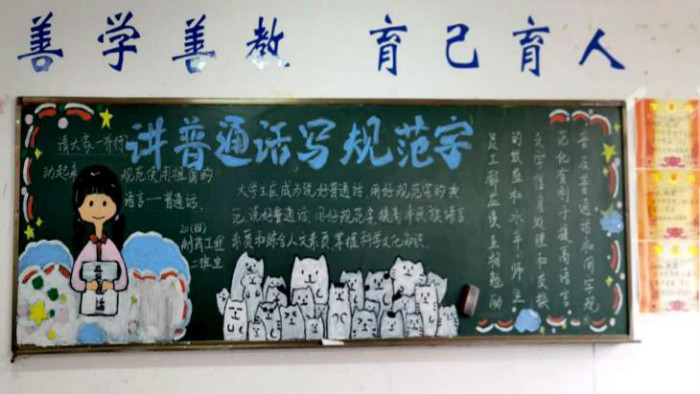 善学善教 育己育人
讲普通话写规范字
请大家一齐行
动起来 规范使用祖国的
语言——普通话.
大学生应成为说好普通话,用好规范字的典
范,说好普通话,用好规范字提高本民族语言
素质和综合人文素质,掌握科学文化知识.
制药工程
二班宣
普及普通话和用字规
范化有利于提高语言
文字信息处理和交换
的效益和水平,师生
员工都应该互相勉励
普通话